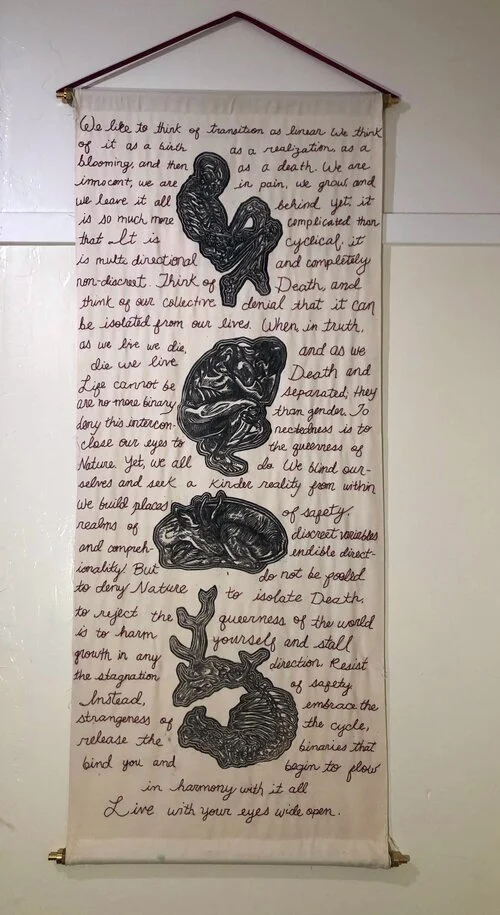 We like to think of transition as linear We think
of it as a birth as a realization, as a
blooming, and then as a death. We are
innocent, we are in pain, we grow, and
we leave it all behind yet, it
is so much more complicated than
that It is cyclical, it
is multi directional and completely
non-discreet. Think of Death, and
think of our collective denial that it can
be isolated from our lives. When, in truth,
as we live we die, and as we
die we live Death and
Life cannot be separated, they
are no more binary than gender. To
deny this intercon- nectedness is to
close our eyes to the queerness of
Nature. Yet, we all do. We blind our-
selves and seek a kinder reality from within
we build places of safety,
realms of discreet variables
and compreh- endible direct-
ionality. But do not be fooled
to deny Nature to isolate Death,
to reject the queerness of the world
is to harm yourself and stall
growth in any direction. Resist
the stagnation of safety.
Instead, embrace the
strangeness of the cycle,
release the binaries that
bind you and begin to flow
in harmony with it all
Live with your eyes wide open.